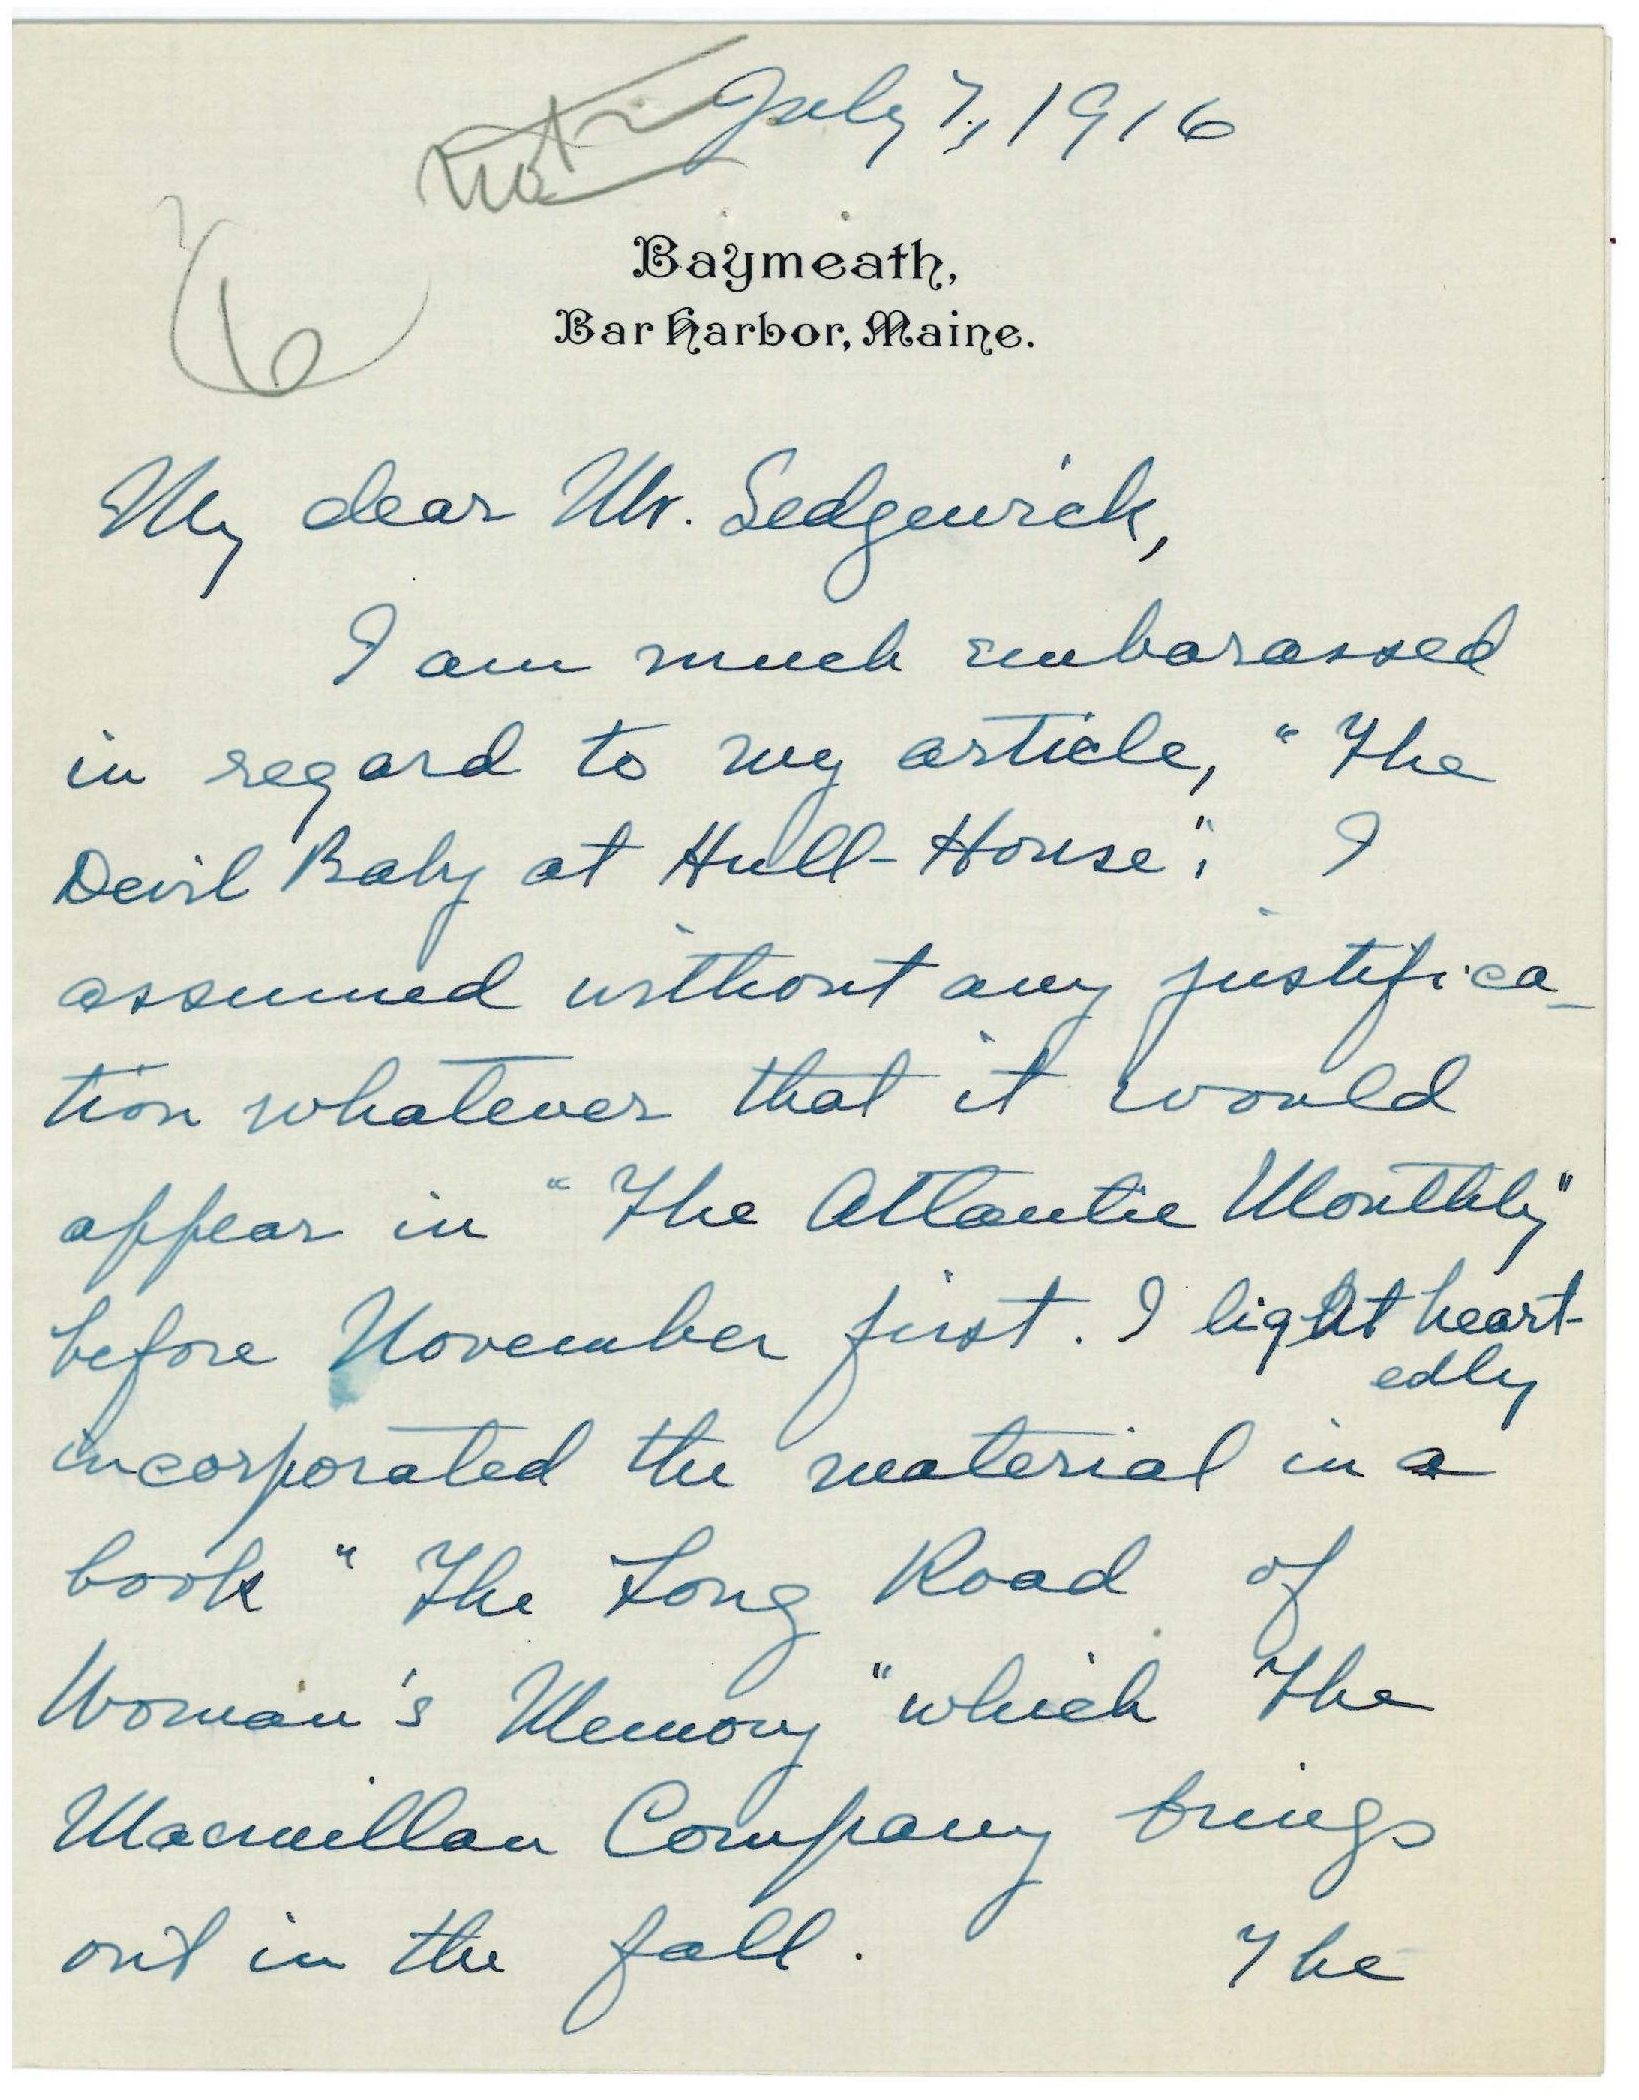 July 7, 1916
Baymeath,
Bar Harbor, Maine.
My dear Mr. Sedgewick,
I am much embarassed
in regard to my article, "The
Devil Baby at Hull-House". I
assumed without any justifica-
tion whatever that it would
appear in "The Atlantic Monthly"
before November first. I light heart-
edly
incorporated the material in a
book "The Long Road of
Woman's Memory" which The
Macmillan Company brings
out in the fall. The